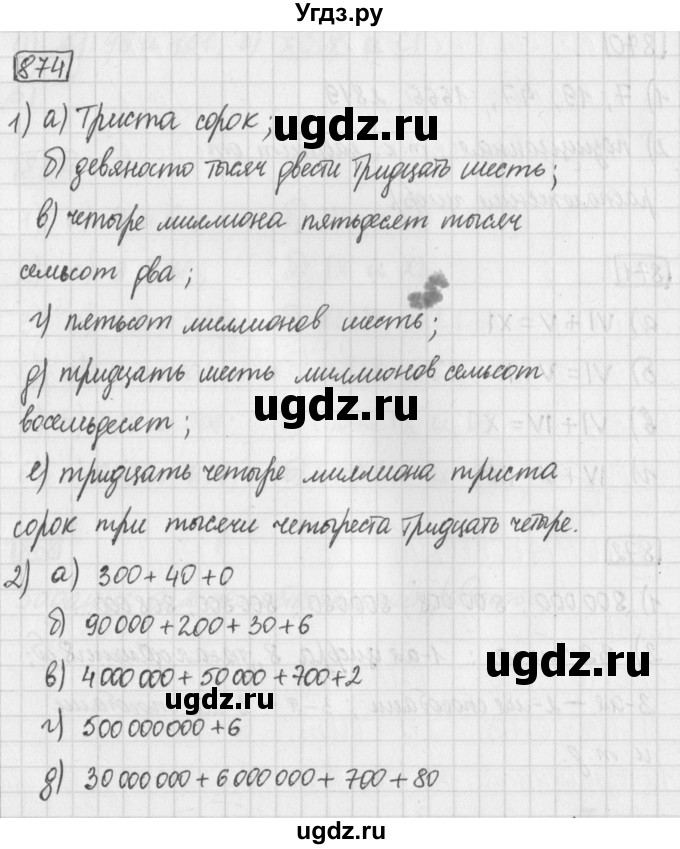 Угдз.ру
874
1) а) Триста сорок;
б) девяносто тысяч двести тридцать шесть;
в) четыре миллиона пятьдесят тысяч
семьсот два;
г) пятьсот миллионов шесть;
д) тридцать шесть миллионов семьсот
ugdz.ru
восемьдесят;
е) тридцать четыре миллиона триста
сорок три тысячи четыреста тридцать четыре.
2) а) 300 + 40 + 0
б) 90 000 + 200 + 30 + 6
в) 4 000 000 + 50 000 + 700 + 2
ugdz.ru
г) 500 000 000 + 6
д) 30 000 000 + 6 000 000 + 700 + 80
ugdz.ru